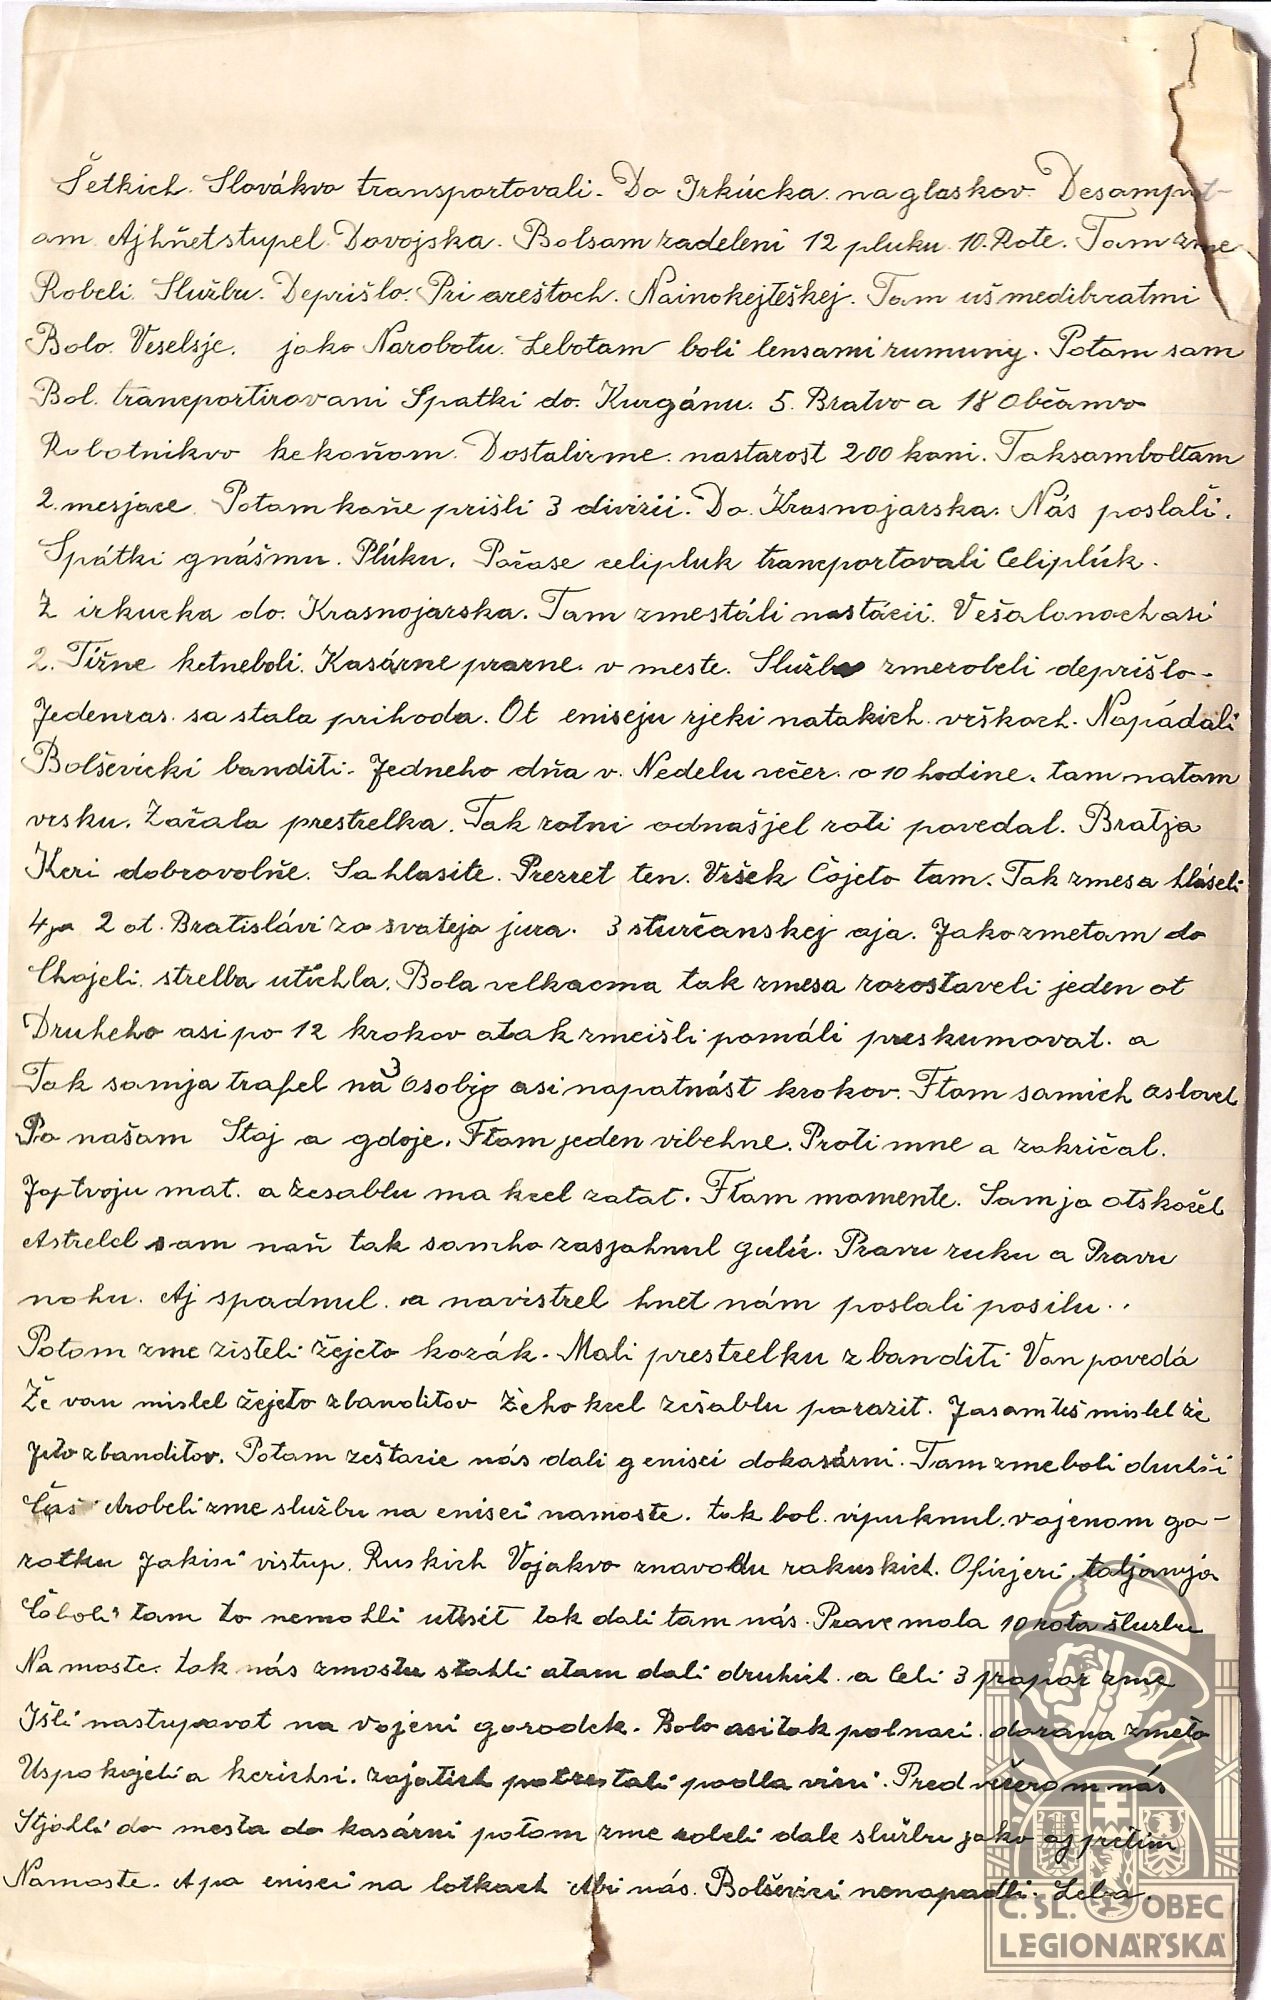 Šetkich. Slovákvo transportovali. Do Irkúcka. na glaskov. Desamput-
am. Ajhňetstupel Dovojska. Bolsam zadeleni 12 pluku 10. Rote. Tam zme
Robeli. Službu. Deprišlo. Pri areštoch. Nainokejteškej. Tam uš medibratmi
Bolo. Veselsje. jako Narobotu. Lebotam boli lensami rumuny. Potom sam
Bol. transportirovani Spatki do. Kurgánu. 5. Bratvo a 18 Občanvo
Robotnikvo kekoňom. Dostalizme. nastarost 200 koni. Taksamboltam
2. mesjace. Potom koňe prišli 3 divizii. Do. Krasnojarska. Nás poslali.
Spátki gnášmu. Plúku. Počase celipluk transportovali Celiplúk.
Z irkucka do. Krasnojarska. Tam zmestáli nastácii. Vešalonoch asi
2. Tížne ketneboli. Kasárne prazne. v meste. Službu zmerobeli deprišlo.
Jedenras. sa stala prihoda. Ot eniseju rjeki natakich. vrškoch. Napádali
Bolševicki banditi. Jedneho dňa v. Nedelu večer. o 10 hodine. tam natom
vrsku. Začala prestrelka. Tak rotni odnašjel roti povedal. Bratja
Keri dobrovolňe. Sa hlasite. Prezret ten. Vršek Čojeto tam. Tak zmesa hláseli
4 ja 2 ot. Bratislávi zo svateja jura. 3 sturčanskej aja. Jakozmetam do
Chojeli. strelba utíchla. Bola velkacma tak zmesa rozostaveli jeden ot
Druheho asi po 12 krokov atak zmeišli pomáli preskumovat. a
Tak somja trafel na 3 Osobi asi napatnást krokov. Ftom somich oslovel
Po našom Stoj a gdoje. Ftom jeden vibehne. Proti mne a zakričal.
Joptvoju mat. a zesablu ma kcel zatat. Ftom momente. Somja otskočel
Astrelel som naň tak somho zasjahnul gulú. Pravu ruku a Pravu
nohu. Aj spadnul. a navistrel hnet nám poslali posilu..
Potom zme zisteli žejeto kozák. Mali prestrelku z banditi Von povedá
Že von mislel žejeto zbanditov Žeho kcel zešablu porazit. Jasomteš mislel že
Jeto zbanditov. Potom zeštacie nás dali g enisei dokasárni. Tamzmeboli druhši
Čas Arobeli zme službu na enisei namoste. tak bol. vipuknul. vojenom go-
rotku Jakisi vistup. Ruskich Vojakvo znavodu rakuskich. Oficjeri. taljanja
Čoboli tam to nemohli utišit tak dali tam nás. Prave mala 10 rota službu
Na moste. tak nás zmostu stahli atam dali druhich. a Celi 3 prapor zme
Išli nastupovat na vojeni gorodek. Bolo asitak polnaci. dorana zmeto
Uspokojeli a kerichsi. zajatich potrestali podla vini. Pred večerom nás
Stjahli do mesta do kasárni potom zme robeli dale službu jako aj pretim
Namoste. A po enisei na lotkach Abi nás. Bolševici nenapadli. Leba.
Č. SL. OBEC
LEGIONÁŘSKÁ